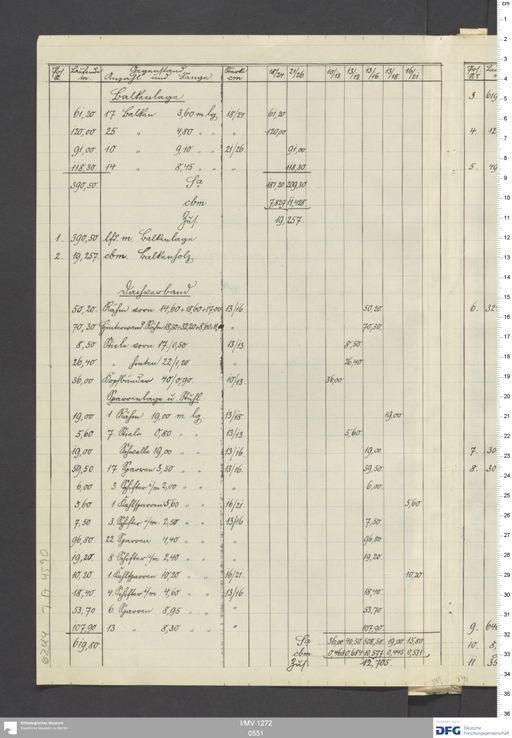 Pos. Laufende Gegenstand Stärke 18/24 21/26 10/13 13/13 13/16 13/18 16/21
N. m. Anzahl und Länge cm
Balkenlage
61,20 17 Balken 3,60 m lg. 18/24 61,20
120,00 25 " 4,80 " " " 120,00
91,00 10 " 9,10 " " 21/26 91,00
118,30 14 " 8,45 " " " 118,30
390,50 Sa 181,20 209,30
cbm 7,829 11,428
Zus. 19,257
1. 390,50 lfd. m. Balkenlage
2. 19,257 cbm. Balkenholz
Dachverband
50,20 Rähm vorn 14,60+18,60+17,00 13/16 50,20
70,30 Hinterwand Rähm " 70,30
8,50 Stiele vorn 17/0,50 13/13 8,50
26,40 " hinten 22/1,20 " 26,40
36,00 Kopfbänder 40/0,90 10/13 36,00
Sparrenlage u. Stuhl
19,00 1 Rähm 19,00 m lg. 13/18 19,00
5,60 7 Stiele 0,80 " " 13/13 5,60
19,00 Schwelle 19,00 " 13/16 19,00
59,50 17 Sparren 3,50 " " 13/16 59,50
6,00 3 Schifter i/m 2,00 " " " 6,00
5,60 1 Kehlsparren 5,60 " 16/21 5,60
7,50 3 Schifter i/m 2,50 " 13/16 7,50
96,80 22 Sparren 4,40 " " 96,80
19,20 8 Schifter i/m 2,40 " " 19,20
10,20 1 Kehlsparren 10,20 " " 16/21 10,20
18,40 4 Schifter i/m 4,60 " " 13/16 18,40
53,70 6 Sparren 8,95 " " " 53,70
107,90 13 " 8,30 " " " 107,90
619,80 Sa 36,00 40,50 508,50 19,00 15,80
cbm 0,468 0,684 10,577 0,445 0,531
Zus. 12,705
Pos.
3. 619
4. 12
5. 49
6. 32
7. 30
8. 30
9. 640
10. 8,
11. 35
Ethnologisches Museum
Staatliche Museen zu Berlin
I/MV 1272
0551
DFG Deutsche
Forschungsgemeinschaft